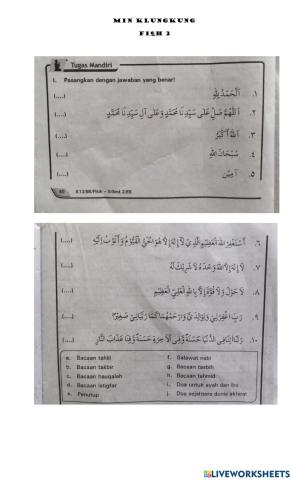 MIN KLUNGKUNG
FIQH 2
Tugas Mandiri
I. Pasangkan dengan jawaban yang benar!
(....) ١. اَلْحَمْدُ لِلّٰهِ
(....) ٢. اَللّٰهُمَّ صَلِّ عَلَى سَيِّدِنَا مُحَمَّدٍ وَعَلَى آلِ سَيِّدِنَا مُحَمَّدٍ
(....) ٣. اَللّٰهُ أَكْبَرُ
(....) ٤. سُبْحَانَ اللهِ
(....) ٥. آمِيْن
60 K13/MI/Fikih - II/Smt 2/BB
(....) ٦. أَسْتَغْفِرُ اللهَ الْعَظِيْمَ الَّذِيْ لَآ إِلٰهَ إِلَّا هُوَ الْحَيُّ الْقَيُّوْمُ وَأَتُوْبُ إِلَيْهِ
(....) ٧. لَآ إِلٰهَ إِلَّا اللهُ وَحْدَهُ لَا شَرِيْكَ لَهُ
(....) ٨. لَا حَوْلَ وَلَا قُوَّةَ إِلَّا بِاللهِ الْعَلِيِّ الْعَظِيْمِ
(....) ٩. رَبِّ اغْفِرْلِيْ وَلِوَالِدَيَّ وَارْحَمْهُمَا كَمَا رَبَّيَانِيْ صَغِيْرًا
(....) ١٠. رَبَّنَا آتِنَا فِي الدُّنْيَا حَسَنَةً وَفِي الْآخِرَةِ حَسَنَةً وَقِنَا عَذَابَ النَّارِ
a. Bacaan tahlil f. Salawat nabi
b. Bacaan takbir g. Bacaan tasbih
c. Bacaan hauqalah h. Bacaan tahmid
d. Bacaan istigfar i. Doa untuk ayah dan ibu
e. Penutup j. Doa sejahtera dunia akhirat
LIVEWORKSHEETS